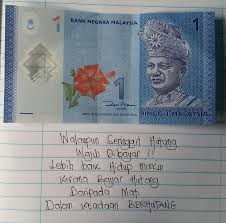 BANK NEGARA MALAYSIA
1
1
RINGGIT MALAYSIA
Walaupun Seringgit Hutang
Wajib Dibayar !!
Lebih baik Hidup miskin
Kerana Bayar Hutang
Daripada Mati
Dalam keadaan BERHUTANG